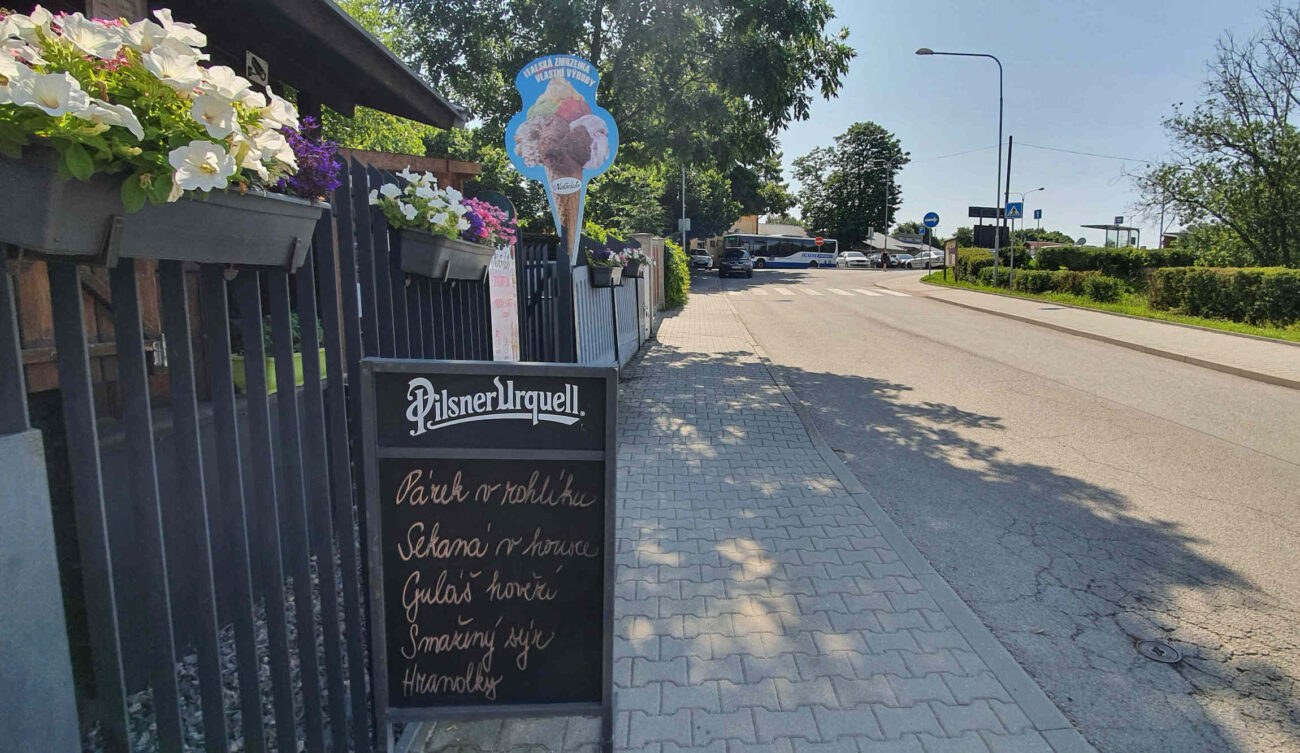 ITALSKÁ ZMRZLINA
VLASTNÍ VÝROBY
Pilsner Urquell
Párek v rohlíku
Sekaná v housce
Guláš hovězí
Smažený sýr
Hranolky